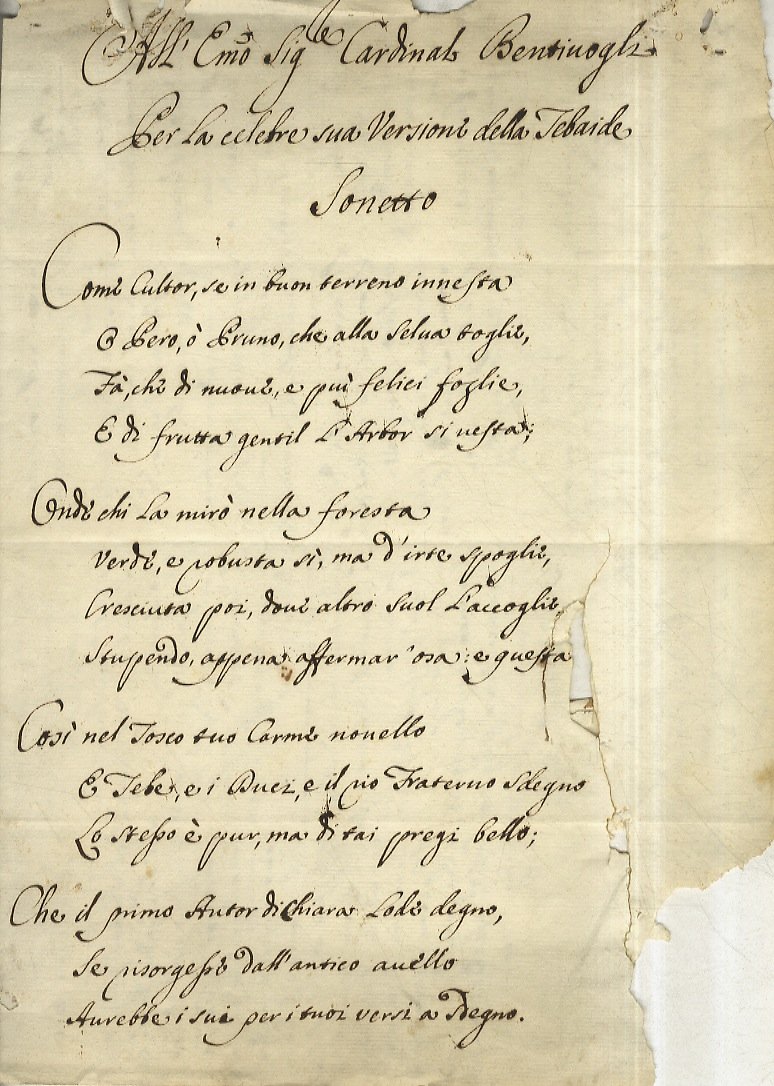 All' Emõ Sig.e Cardinal Bentiuogli
Per la celebre sua Versione della Tebaide
Sonetto
Come Cultor, se in buon terreno innesta
O Pero, ò Pruno, che alla Selua toglie,
Fà, che di nuoue, e più felici foglie,
E di frutta gentil l'Arbor si uesta;
Onde chi la mirò nella foresta
Verde, e robusta sì, ma d'irte spoglie,
Cresciuta poi, doue altro suol l'accoglie
Stupendo, appena affermar' osa: è questa
Così nel Tosco tuo Carme nouello
E Tebe, e i Duci, e il rio Fraterno Sdegno
Lo stesso è pur, ma di tai pregi bello;
Che il primo Autor di chiara Lode degno,
Se risorgesse dall'antico auello
Aurebbe i sui per i tuoi versi a sdegno.